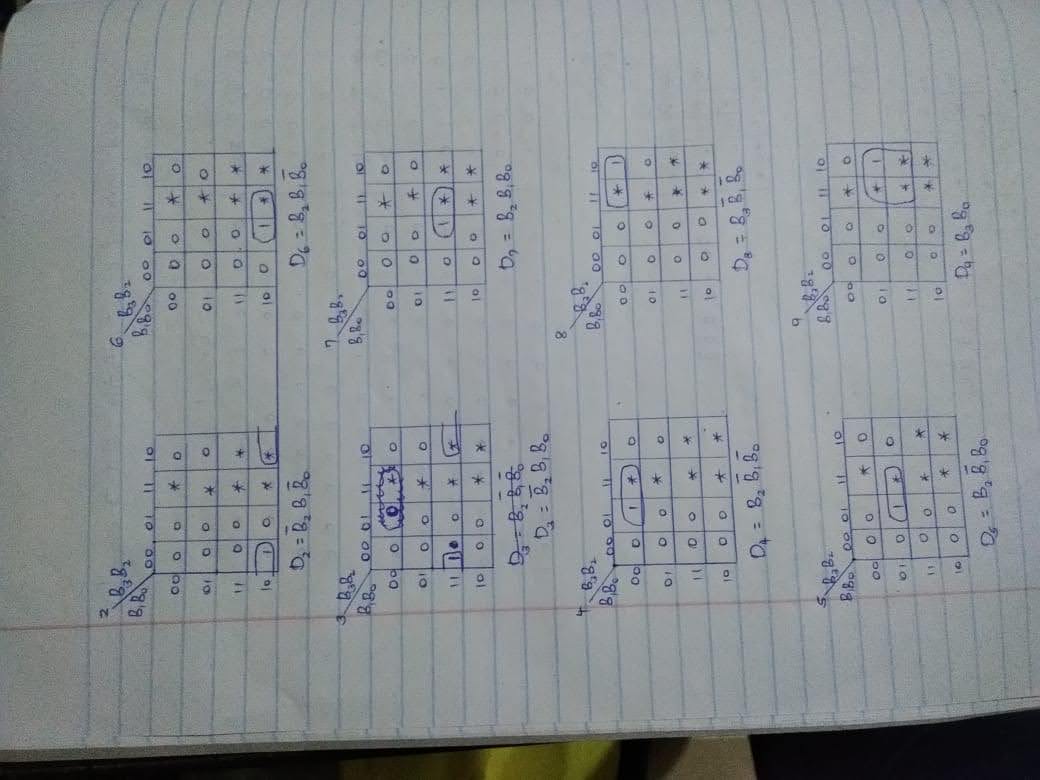 2 B₃B₂
B₁B₀ 00 01 11 10
00 0 0 * 0
01 0 0 * 0
11 0 0 * *
10 1 0 * *
D₂ = B̄₂ B₁ B̄₀
6 B₃B₂
B₁B₀ 00 01 11 10
00 0 0 * 0
01 0 0 * 0
11 0 0 * *
10 0 1 * *
D₆ = B₂ B₁ B̄₀
3 B₃B₂
B₁B₀ 00 01 11 10
00 0 0 * 0
01 0 0 * 0
11 1 0 * *
10 0 0 * *
D₃ = B̄₂ B̄₁ B̄₀
D₃ = B̄₂ B₁ B₀
7 B₃B₂
B₁B₀ 00 01 11 10
00 0 0 * 0
01 0 0 * 0
11 0 1 * *
10 0 0 * *
D₇ = B₂ B₁ B₀
4 B₃B₂
B₁B₀ 00 01 11 10
00 0 1 * 0
01 0 0 * 0
11 0 0 * *
10 0 0 * *
D₄ = B₂ B̄₁ B̄₀
8 B₃B₂
B₁B₀ 00 01 11 10
00 0 0 * 1
01 0 0 * 0
11 0 0 * *
10 0 0 * *
D₈ = B₃ B̄₁ B̄₀
5 B₃B₂
B₁B₀ 00 01 11 10
00 0 0 * 0
01 0 1 * 0
11 0 0 * *
10 0 0 * *
D₅ = B₂ B̄₁ B₀
9 B₃B₂
B₁B₀ 00 01 11 10
00 0 0 * 0
01 0 0 * 1
11 0 0 * *
10 0 0 * *
D₉ = B₃ B₀